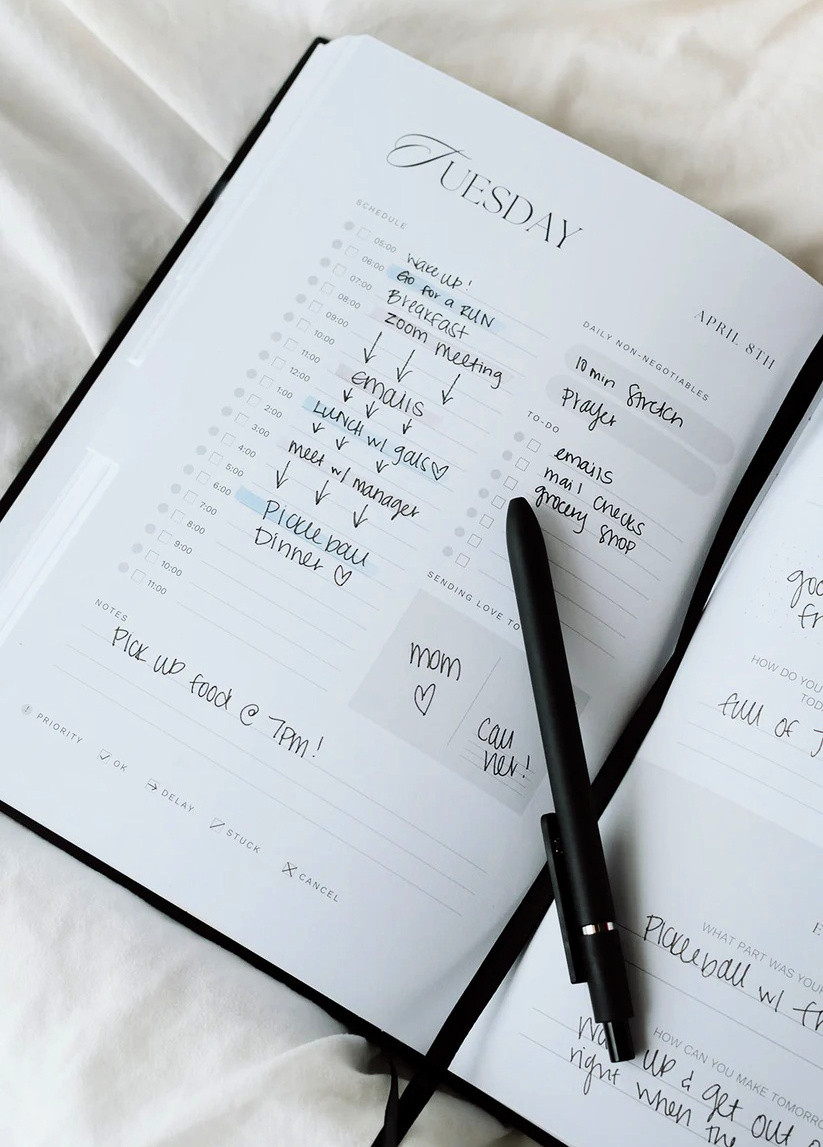 TUESDAY
APRIL 8TH
SCHEDULE
05:00 wake up!
06:00 Go for a RUN
07:00 Breakfast
08:00 zoom meeting
09:00
10:00
11:00 emails
12:00
1:00 LUNCH w/ gals♡
2:00
3:00 meet w/ manager
4:00
5:00
6:00 Pickleball
7:00 Dinner ♡
8:00
9:00
10:00
11:00
DAILY NON-NEGOTIABLES
10 min stretch
Prayer
TO-DO
emails
mail checks
grocery shop
SENDING LOVE TO
mom
♡
call
her!
NOTES
Pick up food @ 7pm!
! PRIORITY
OK
DELAY
STUCK
CANCEL
HOW DO YOU
full of
WHAT PART WAS YOUR
Pickleball w/
HOW CAN YOU MAKE
up & get out
right when the